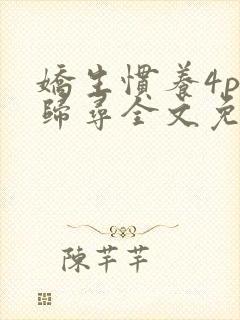 嬌生慣養4p
歸尋全文免
陳芊芊